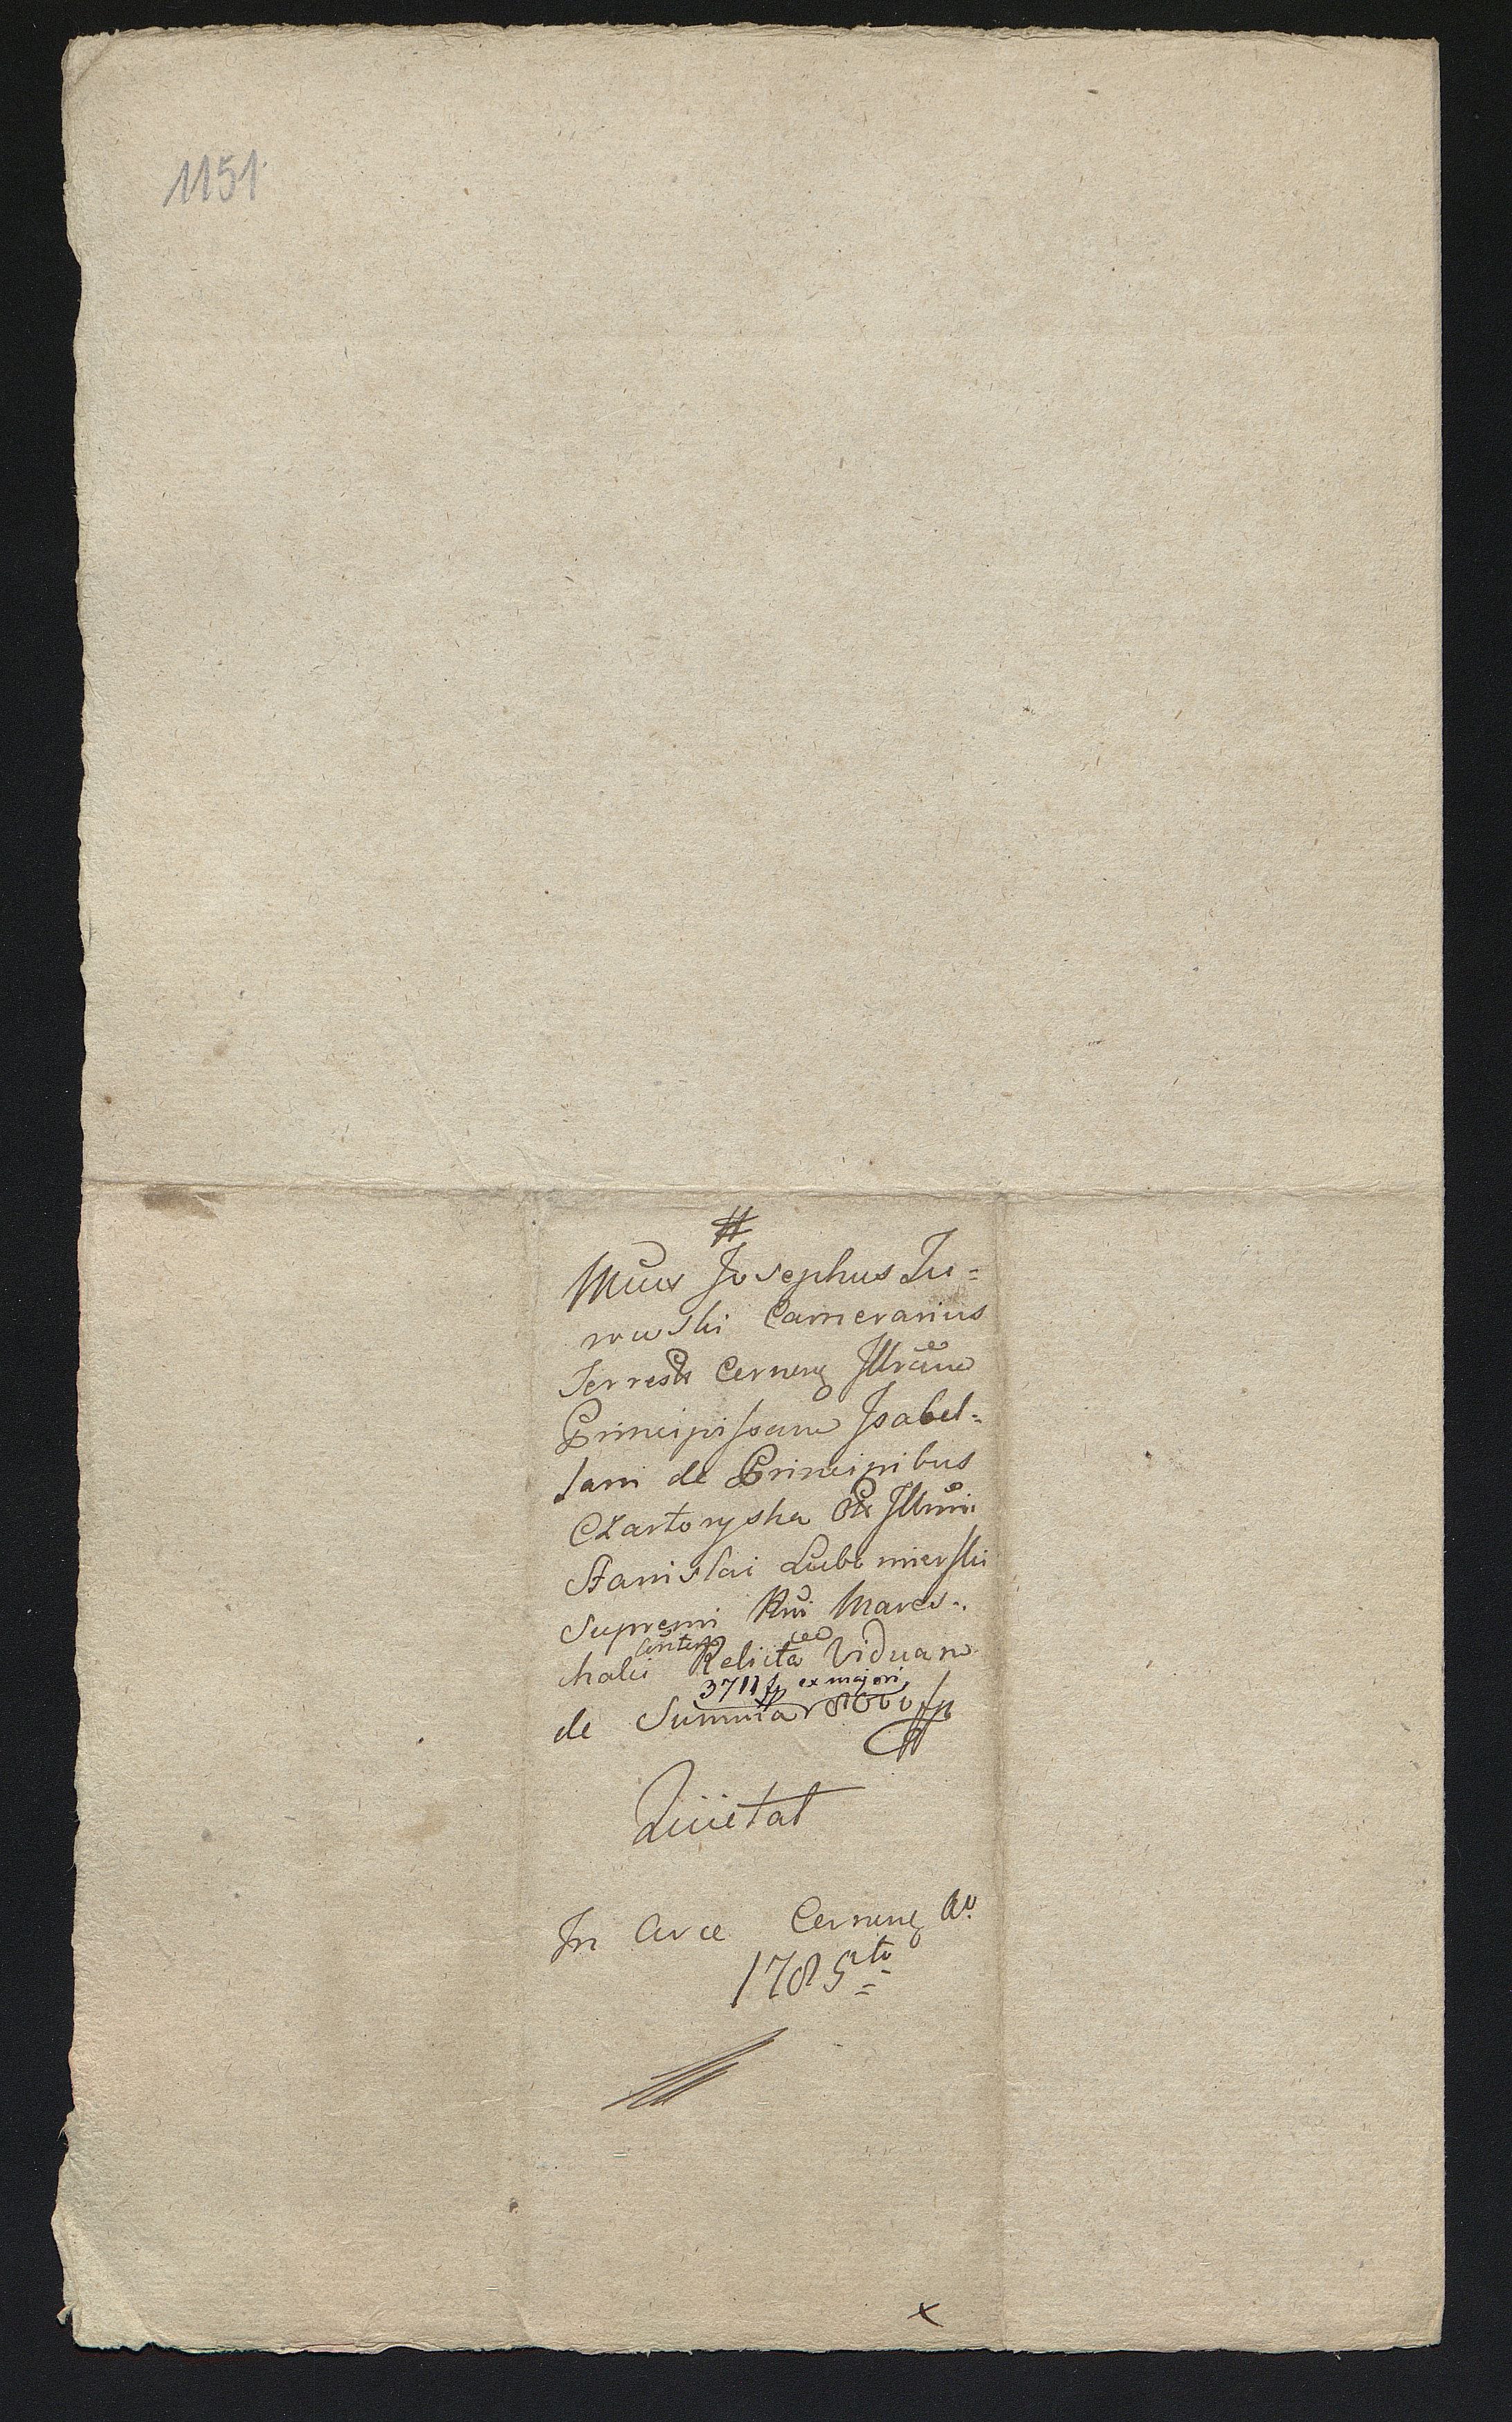 1151
#
Mcus Josephus Tu=
rowski Camerarius
Terrest Cernens Illrem
Principissam Isabel=
lam de Principibus
Czartoryska Illmi
Stanislai Lubomierski
Supremi Rni Mares=
chalci Relicta Viduam
3711 fp ex majori
de Summa 8000 fp
Quietat
In Arce Cernens Ao
1785to
x